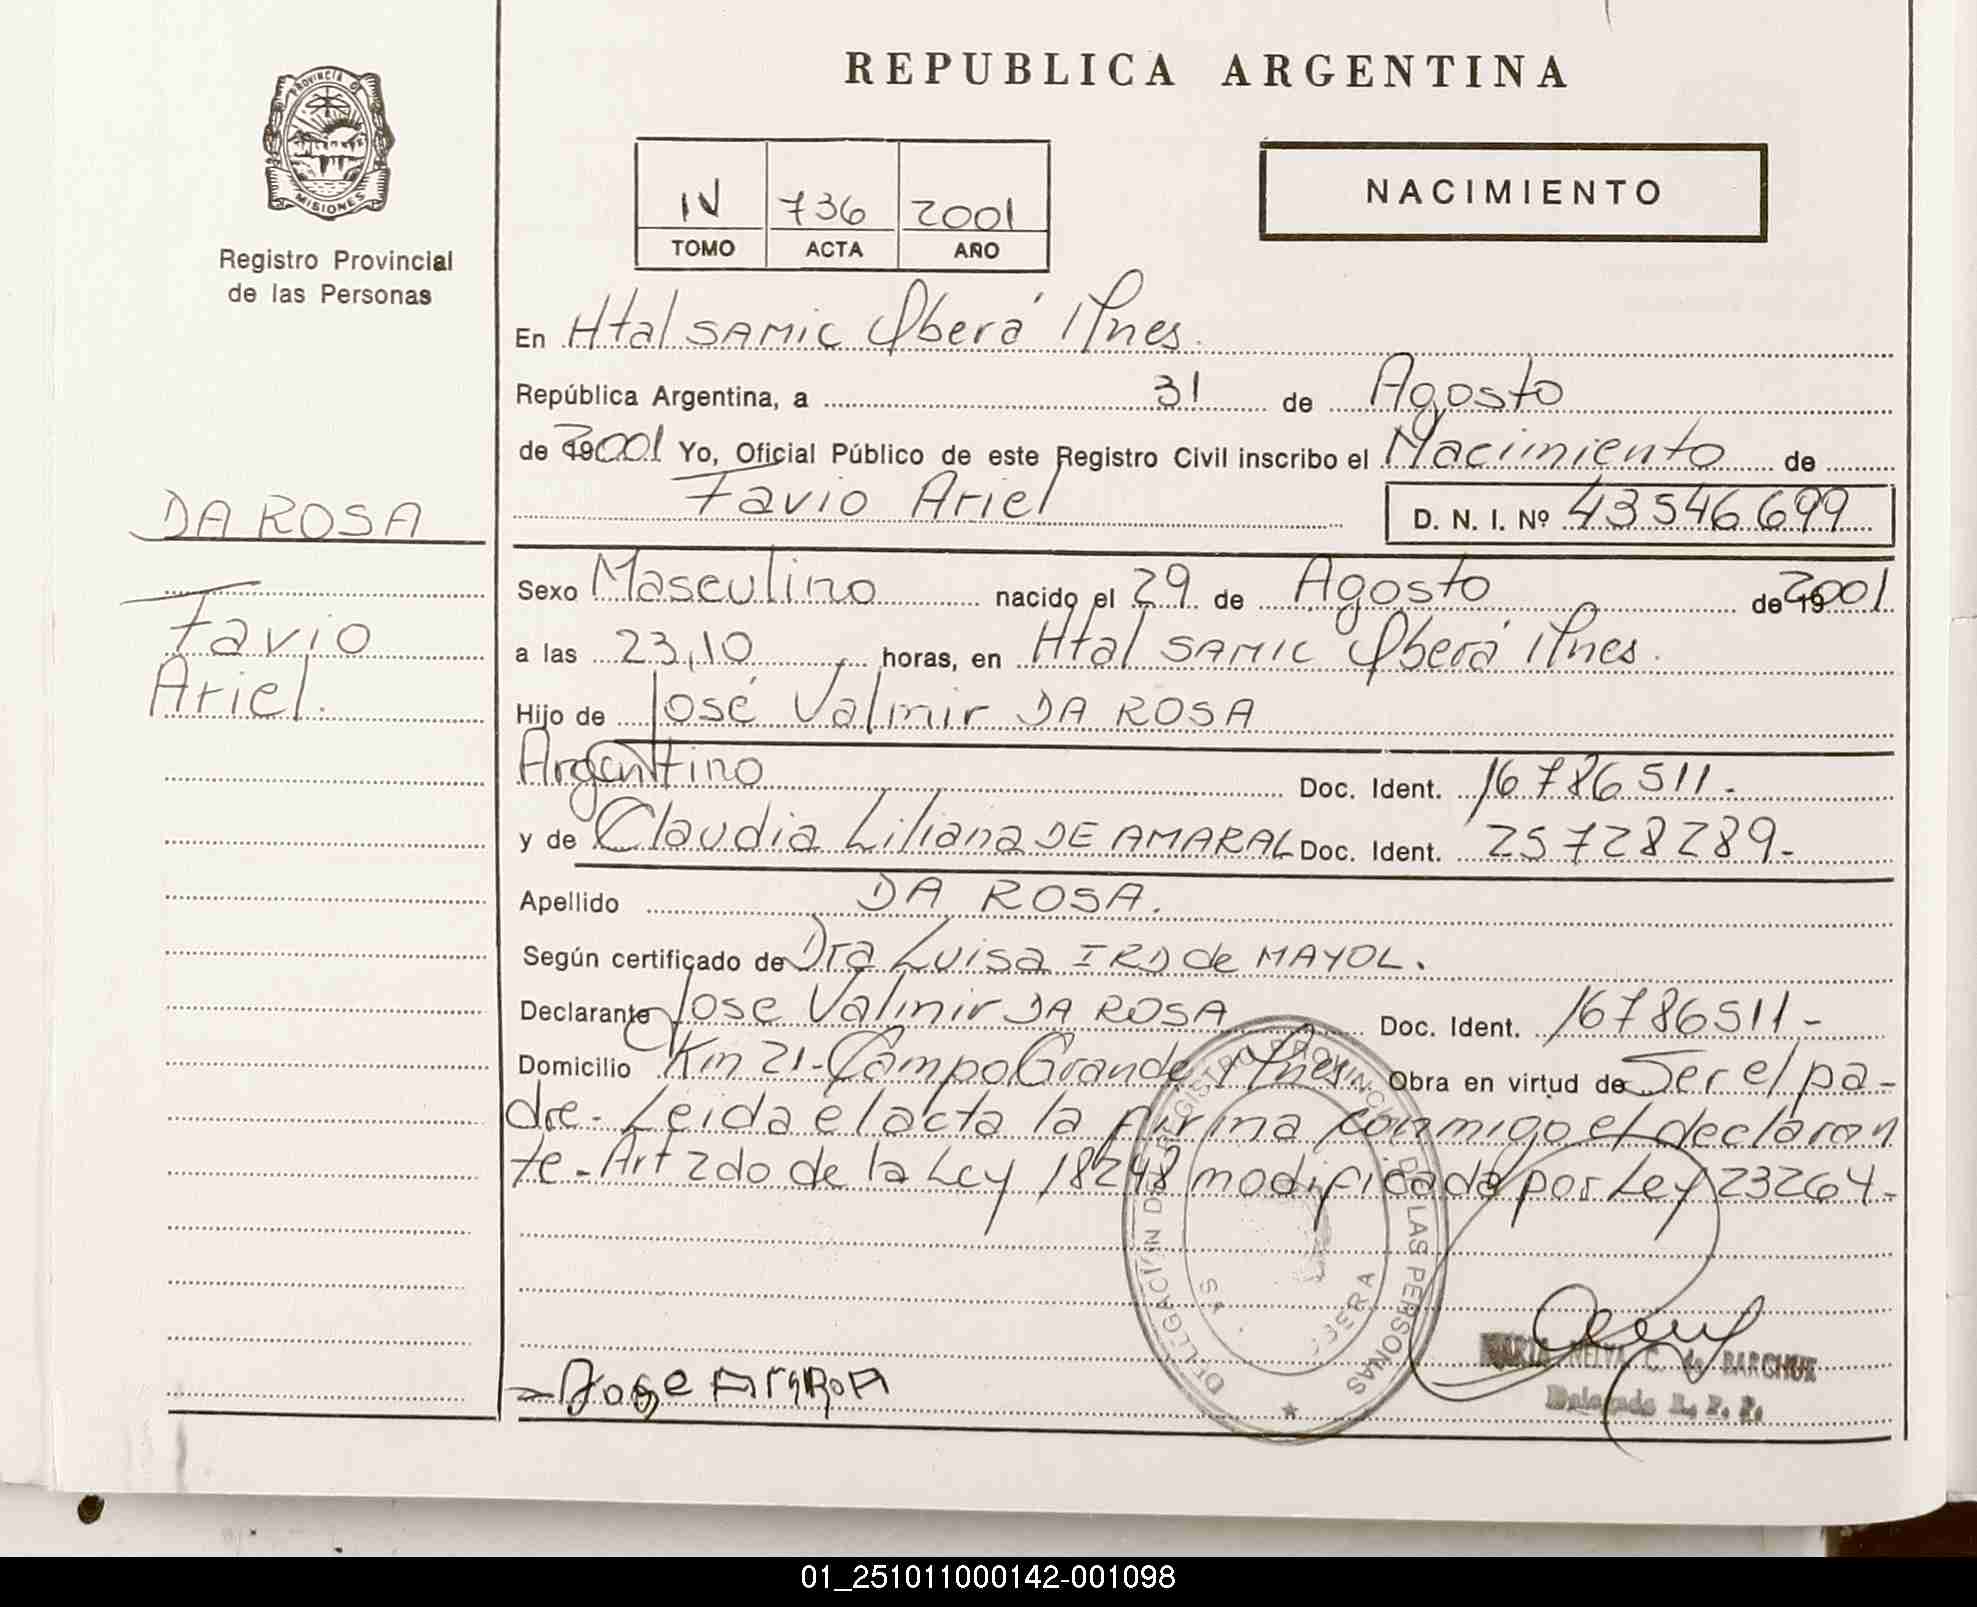 REPUBLICA ARGENTINA
PROVINCIA DE
MISIONES
Registro Provincial
de las Personas
NACIMIENTO
IV 736 2001
TOMO ACTA AÑO
En Htal SAMIC Oberá Mnes.
República Argentina, a 31 de Agosto
de 2001 Yo, Oficial Público de este Registro Civil inscribo el Nacimiento de
Favio Ariel D. N. I. Nº 43546699
DA ROSA
Favio
Ariel.
Sexo Masculino nacido el 29 de Agosto de 2001
a las 23,10 horas, en Htal SAMIC Oberá Mnes.
Hijo de José Valmir DA ROSA
Argentino Doc. Ident. 16786511-
y de Claudia Liliana DE AMARAL Doc. Ident. 25728289-
Apellido DA ROSA.
Según certificado de Dra Luisa IRD de MAYOL.
Declarante Jose Valmir DA ROSA Doc. Ident. 16786511-
Domicilio Km 21-Campo Grande Mnes. Obra en virtud de Ser el pa-
dre- Leida el acta la firma conmigo el declaran
te-Art 2do de la Ley 18248 modificada por Ley 23264-
DELEGACION DEL REGISTRO PROVINCIAL DE LAS PERSONAS
OBERA
MARIA NELVA C. de BARCHUK
Delegado R. P. P.
01_251011000142-001098